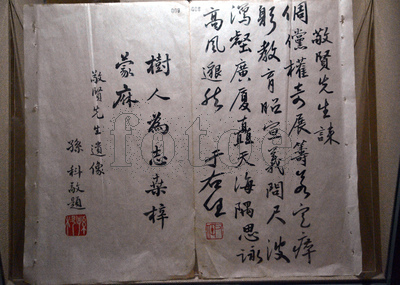 敬賢先生誄
倜儻權奇展籌若定瘁
躬教育昭宣義問尺波
瀉壑廣廈矗天海隅思詠
高風邈然 于右任
樹人為志桑梓
蒙庥
敬賢先生遺像
孫科敬題
fotoe